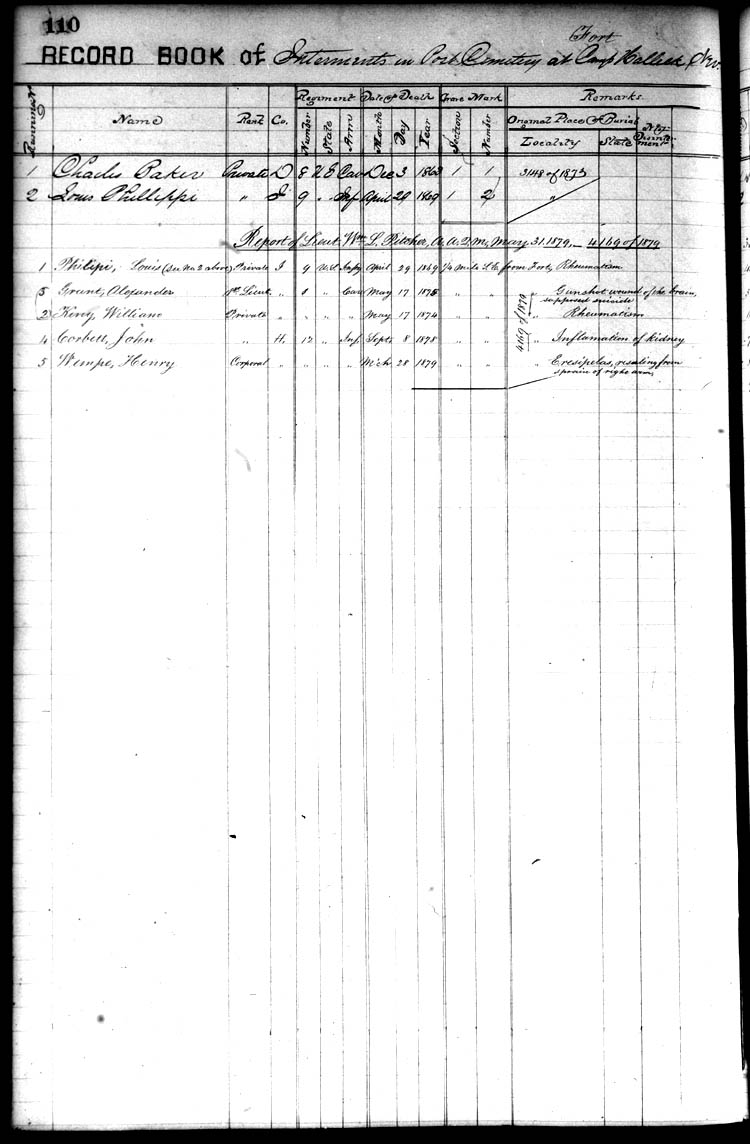 110
Fort
RECORD BOOK of Interments in Post Cemetery at Camp Halleck, Nev.
Regiment Date of Death Grave Mark Remarks
Name Rank Co. Number State Arm Month Day Year Section Number Original Place of Burial
Locality State
1 Charles Baker Private D 8 U S Cav Dec 3 1868 1 1 3148 of 1873
2 Louis Phillippi " I 9 " Inf April 29 1869 1 2 "
Report of Lieut. Wm L. Pitcher, A. A. Q. M., May 31. 1879,— 4169 of 1879
1 Philipi, Louis (See No. 2 above) Private I 9 U.S. Infy April 29 1869 1/4 mile S.E. from Fort, Rheumatism
5 Grant, Alexander 1st Lieut. " 1 " Cav May 17 1875 " " " Gunshot wound of the brain,
supposed suicide
2 King, William Private " " " " May 17 1874 " " " Rheumatism
4169 of 1879
4 Corbett, John " H. 12 " Inf. Sept. 8 1878 " " " Inflamation of kidney
5 Wempe, Henry Corporal " " " " M'ch 28 1879 " " " Eresipelas, resulting from
sprain of right arm,